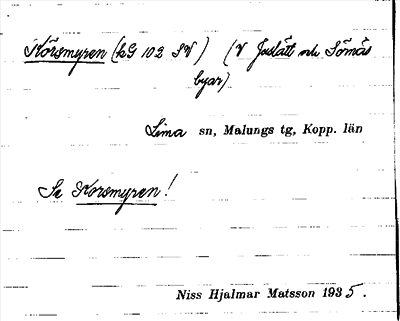 Körsmyren (kG 102 SV) (V Juslätt och Sörnäs
byar)
Lima sn, Malungs tg, Kopp. län
Se Korsmyren!
Niss Hjalmar Matsson 1935.